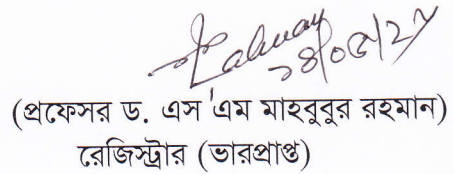 ১৪/০৫/২৭
(প্রফেসর ড. এস এম মাহবুবুর রহমান)
রেজিস্ট্রার (ভারপ্রাপ্ত)